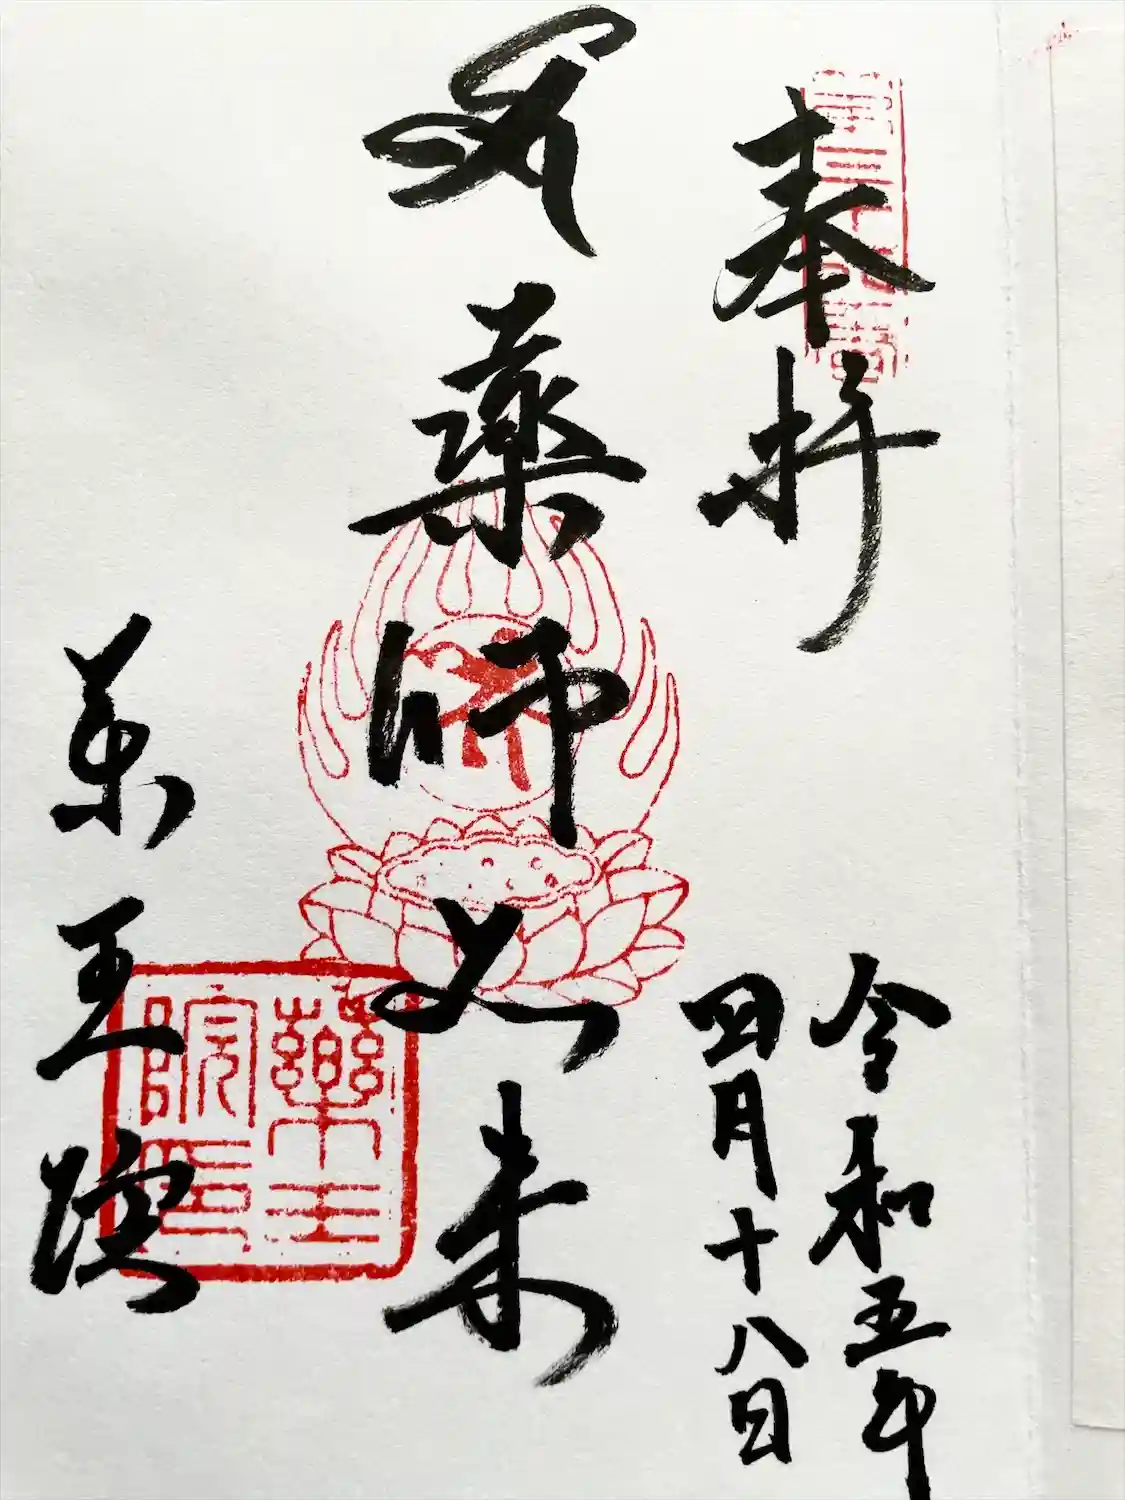 奉拝
令和五年
四月十八日
薬師如来
薬王院
藥王院印